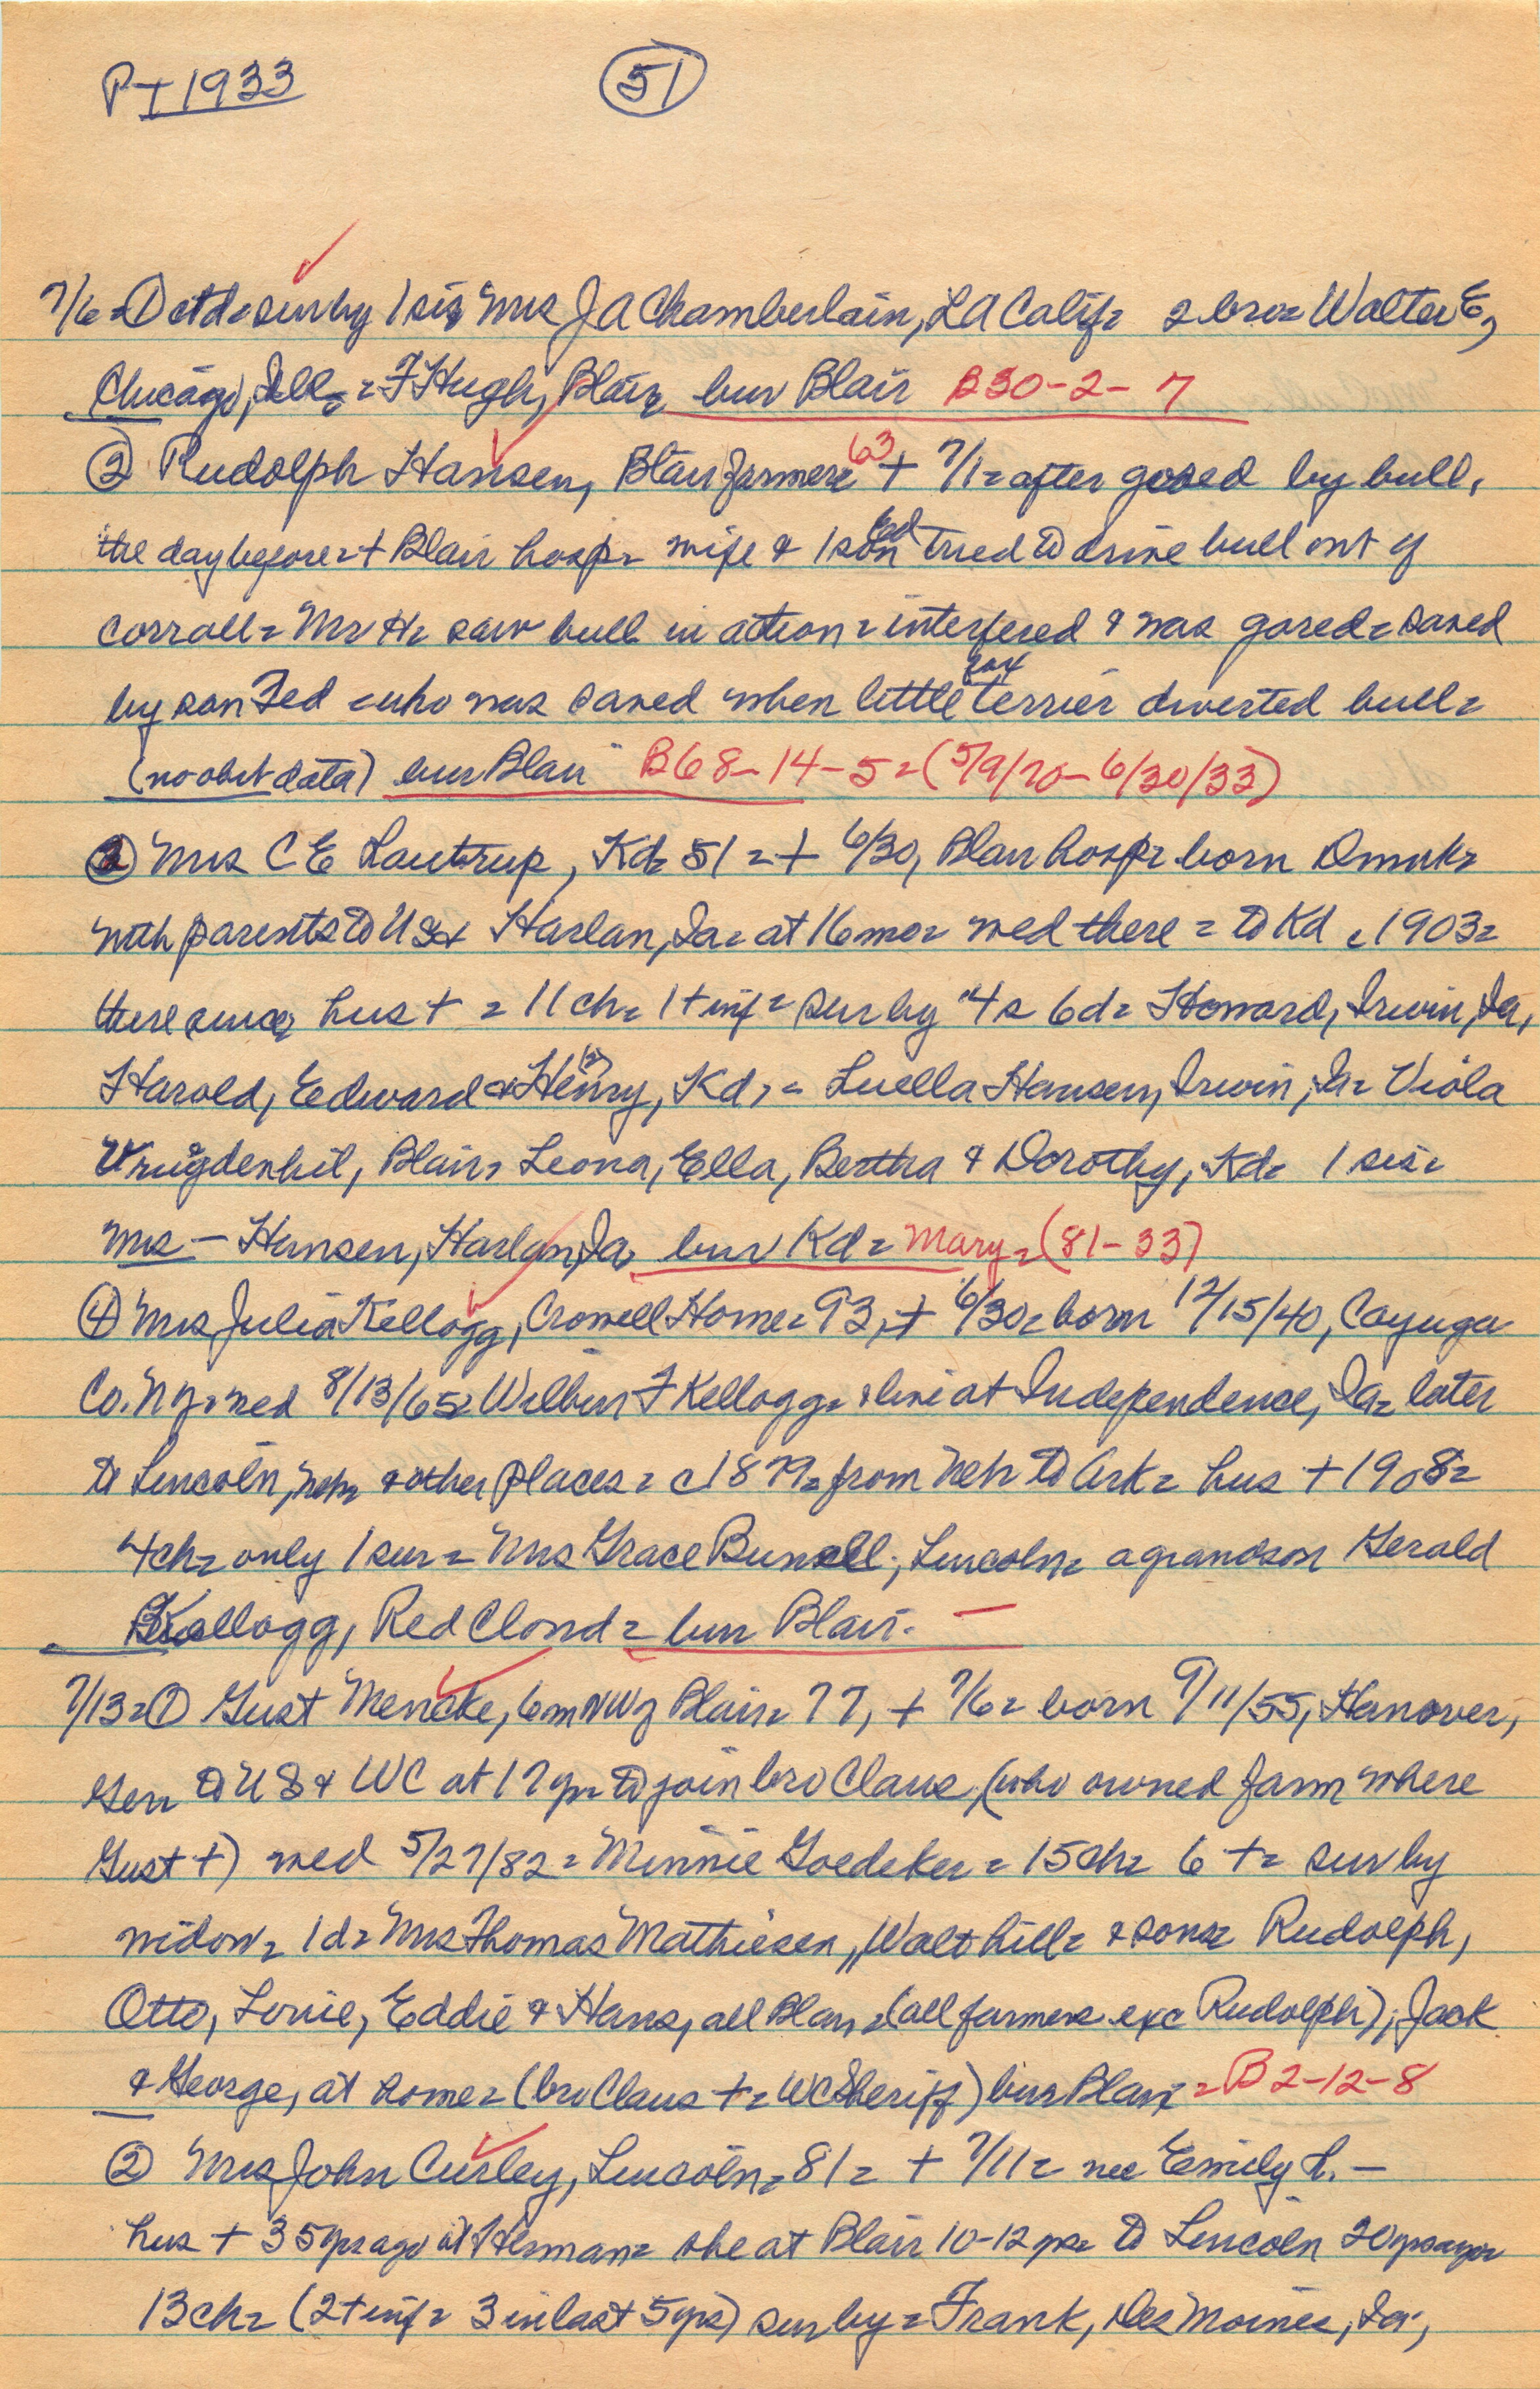 PT 1933 (51)
7/6 = ① ctd = sur by 1 sis Mrs J A Chamberlain, LA Calif = 2 bro = Walter E,
Chicago, Ill = F Hugh, Blair bur Blair B30-2-7
② Rudolph Hansen, Blair farmer = 63 + 7/1 = after gored by bull,
the day before = + Blair hosp = wife & 1 son tried to drive bull out of
corroll = Mr H = saw bull in action = interfered & was gored = saved
by son Fed = who was saved when little fox terrier diverted bull =
(no obit data) bur Blair B68-14-5 = (5/9/70-6/30/33)
③ Mrs C E Lautrup, Kd = 51 = + 6/30, Blair hosp = born Dnmk =
with parents to US & Harlan, Ia = at 16 mo = med there = to Kd c 1903 =
there since hus + = 11 ch = 1 + inf = sur by 4 s 6 d = Howard, Irwin, Ia,
Harold, Edward & Henry (?), Kd, = Luella Hansen, Irwin, Ia = Viola
Vrugdenhil, Blair, Leona, Ella, Bertha & Dorothy, Kd = 1 sis =
Mrs — Hansen, Harlan, Ia bur Kd = Mary = (81-33)
④ Mrs Julia Kellogg, Crowell Home = 93, + 6/30 = born 12/15/40, Cayuga
Co. NY = med 8/13/65 = Wilbur F Kellogg = & live at Independence, Ia = later
to Lincoln, Neb = & other places = c 1879 = from Neb to Ark = hus + 1908 =
4 ch = only 1 sur = Mrs Grace Bunell, Lincoln = a grandson Gerald
Kellogg, Red Cloud = bur Blair. —
7/13 = ① Gust Mencke, 6 m NW of Blair = 77, + 7/6 = born 9/11/55, Hanover,
Ger = to US & WC at 17 yr = to join bro Claus, (who owned farm where
Gust +) med 5/27/82 = Minnie Goedeker = 15 ch = 6 + = sur by
widow = 1 d = Mrs Thomas Mathiesen, Walthill = & sons = Rudolph,
Otto, Louie, Eddie & Hans, all Blair = (all farmers exc Rudolph), Jack
& George, at home = (bro Claus + = WC Sheriff) bur Blair = B 2-12-8
② Mrs John Curley, Lincoln = 81 = + 7/11 = nee Emily L. —
hus + 35 yrs ago at Herman = she at Blair 10-12 yrs = to Lincoln 20 yrs ago =
13 ch = (2 + inf = 3 in last 5 yrs) sur by = Frank, Des Moines, Ia,